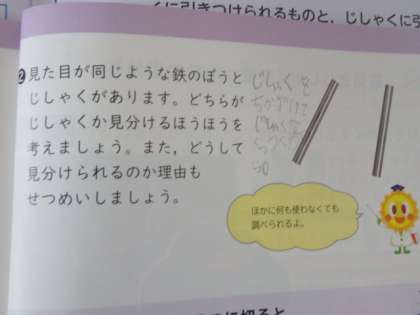 くに引きつけられるものと，じしゃくに引
❷見た目が同じような鉄のぼうと
じしゃくがあります。どちらが
じしゃくか見分けるほうほうを
考えましょう。また，どうして
見分けられるのか理由も
せつめいしましょう。
じしゃくを
ちかづけて
ほかに何も使わなくても
調べられるよ。